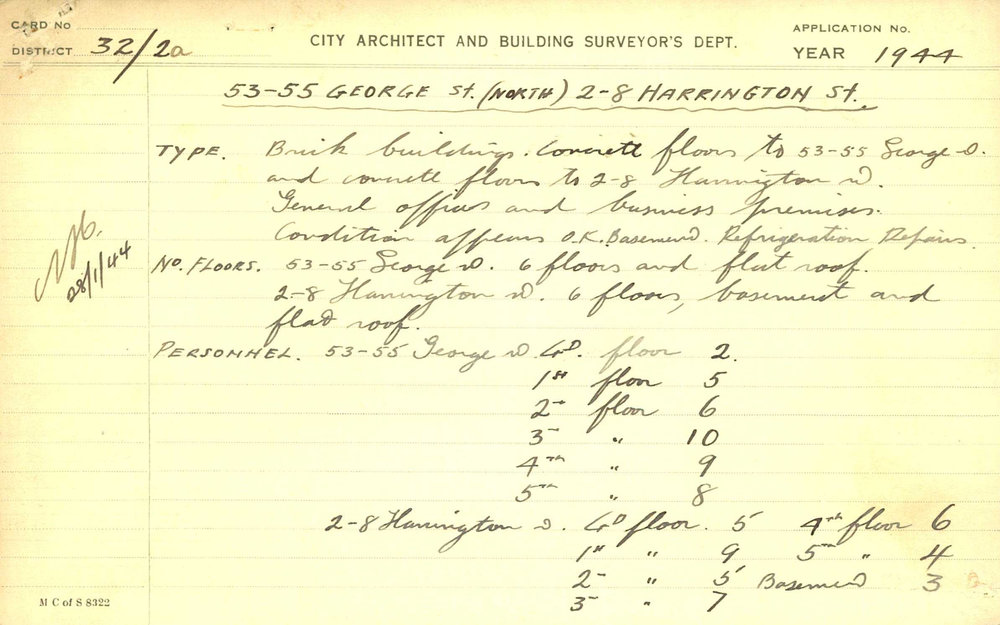 CARD NO
DISTRICT 32/2a
CITY ARCHITECT AND BUILDING SURVEYOR'S DEPT.
APPLICATION NO.
YEAR 1944
53-55 GEORGE St. (NORTH) 2-8 HARRINGTON St.
TYPE. Brick buildings. Concrete floors to 53-55 George St.
and concrete floors to 2-8 Harrington St.
General offices and business premises.
Condition appears O.K. Basement. Refrigeration Repairs.
28/1/44
NO. FLOORS. 53-55 George St. 6 floors and flat roof.
2-8 Harrington St. 6 floors, basement and
flat roof.
PERSONNEL. 53-55 George St. GD. floor 2.
1st floor 5
2nd floor 6
3rd " 10
4th " 9
5th " 8
2-8 Harrington St. GD floor. 5 4th floor 6
1st " 9 5th " 4
2nd " 5 Basement 3
3rd " 7
M C of S 8322